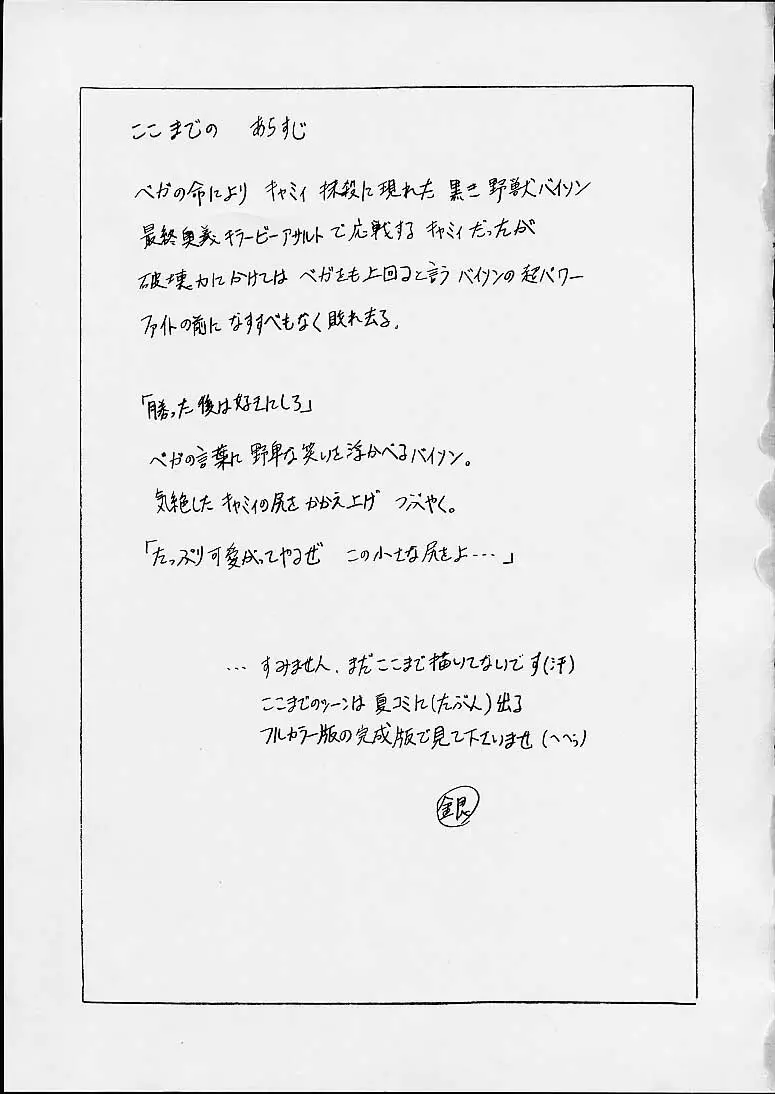 ここまでの あらすじ
ベガの命により キャミィ 抹殺に現れた 黒き 野獣バイソン
最終奥義キラービーアサルトで応戦する キャミィだったが
破壊力にかけては ベガをも上回ると言う バイソンの超パワー
ファイトの前に なすすべもなく 敗れ去る.
「勝った後は好きにしろ」
ベガの言葉に 野卑な笑いを浮かべるバイソン。
気絶した キャミィの尻を かかえ上げ つぶやく。
「たっぷり可愛がってやるぜ この小さな尻をよ…」
… すみません、まだここまで描いてないです(汗)
ここまでのシーンは 夏コミに(たぶん)出る
フルカラー版の完成版で見て下さいませ(へへっ)
銀